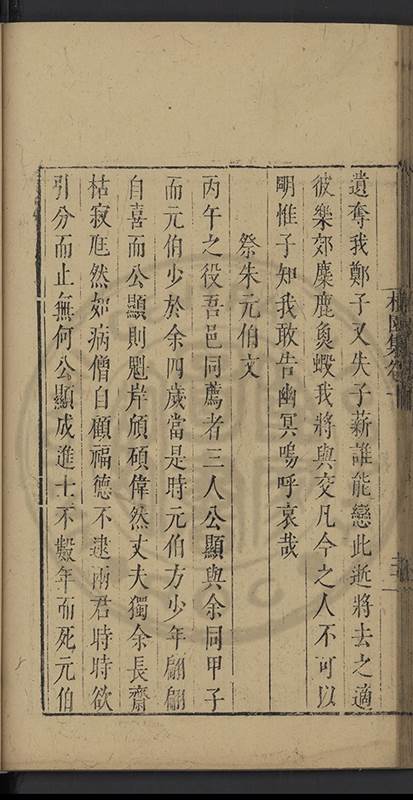 遺奪我鄭子又失子薪誰能戀此逝將去之適
彼樂郊麋鹿魚蝦我將與交凡今之人不可以
明惟子知我敢告幽冥嗚呼哀哉
祭朱元伯文
丙午之役吾邑同薦者三人公顯與余同甲子
而元伯少於余四歲當是時元伯方少年翩翩
自喜而公顯則魁岸頎碩偉然丈夫獨余長齋
枯寂尫然如病僧自顧福德不逮兩君時時欲
引分而止無何公顯成進士不數年而死元伯